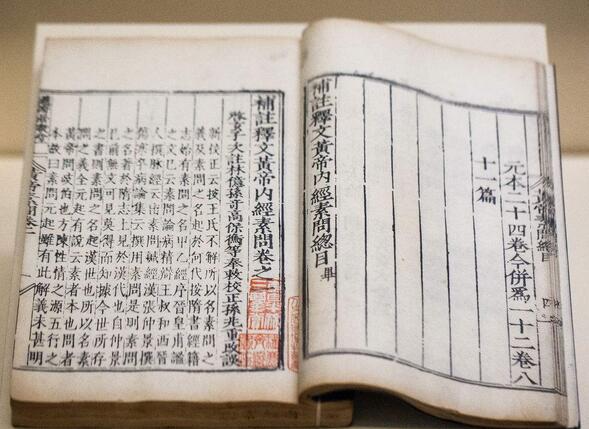 元本二十四卷今併爲一十二卷八
十一篇
補註釋文黃帝內經素問總目畢
補註釋文黃帝內經素問卷之一
啓玄子次註林億孫奇高保衡等奉敕校正孫兆重改誤
新校正云按王氏不解所以名素問之
義及素問之名起於何代按隋書經籍
志始有素問之名甲乙經序晉皇甫謐
之文已云素問論病精辯王叔和西晉
人撰脉經云出素問鍼經漢張仲景撰
傷寒卒病論集云撰用素問是則素問
之名著於隋志上見於漢代也自仲景
已前無文可見莫得而知據今世所存
之書則素問之名起漢世也所以名素
問之義全元起有說云素者本也問者
黃帝問歧伯也方陳性情之源五行之
本故曰素問元起雖有此解義未甚明